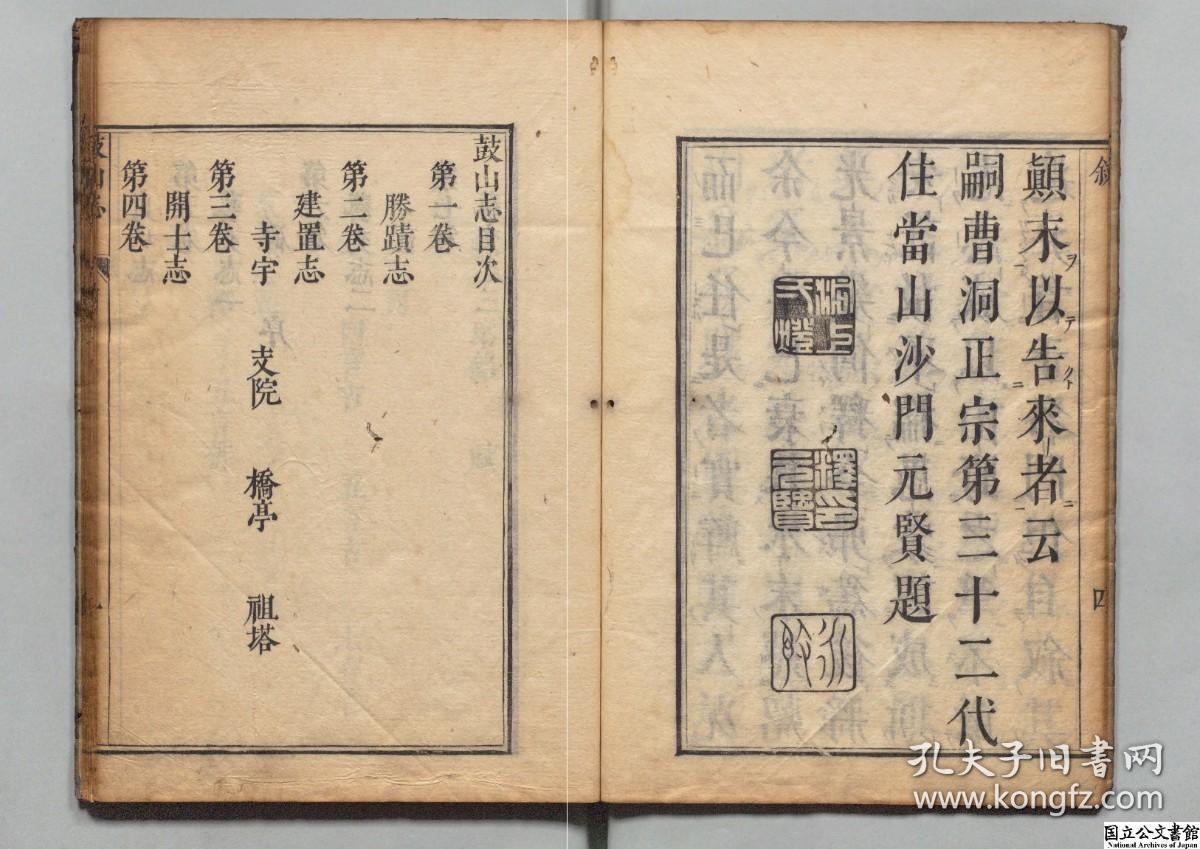 顛末以告來者云
嗣曹洞正宗第三十二代
住當山沙門元賢題
敍
四
鼓山志目次
第一卷
勝蹟志
第二卷
建置志
寺宇 支院 橋亭 祖塔
第三卷
開士志
第四卷
鼓山志
孔夫子旧书网
www.kongfz.com
国立公文書館
National Archives of Japan